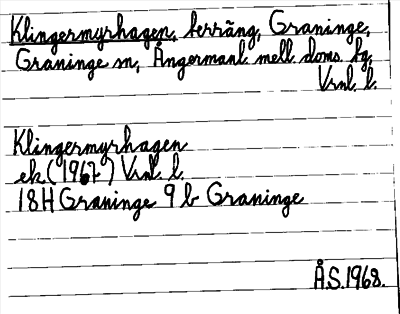 Klingermyrhagen, terräng, Graninge,
Graninge sn, Ångermanl. mell. doms. hg,
Vrnl. l.
Klingermyrhagen
ek (1967) Vrnl. l.
18H Graninge 9 b Graninge
Å.S. 1968.